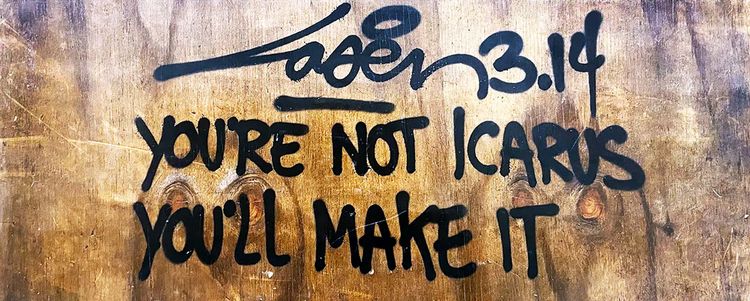 Laser 3.14
YOU'RE NOT ICARUS
YOU'LL MAKE IT